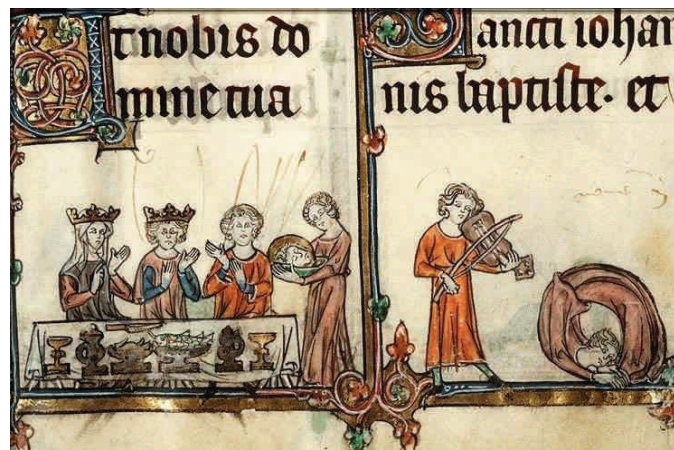 nobis do
mine tua
Sancti iohan
nis baptiste. et